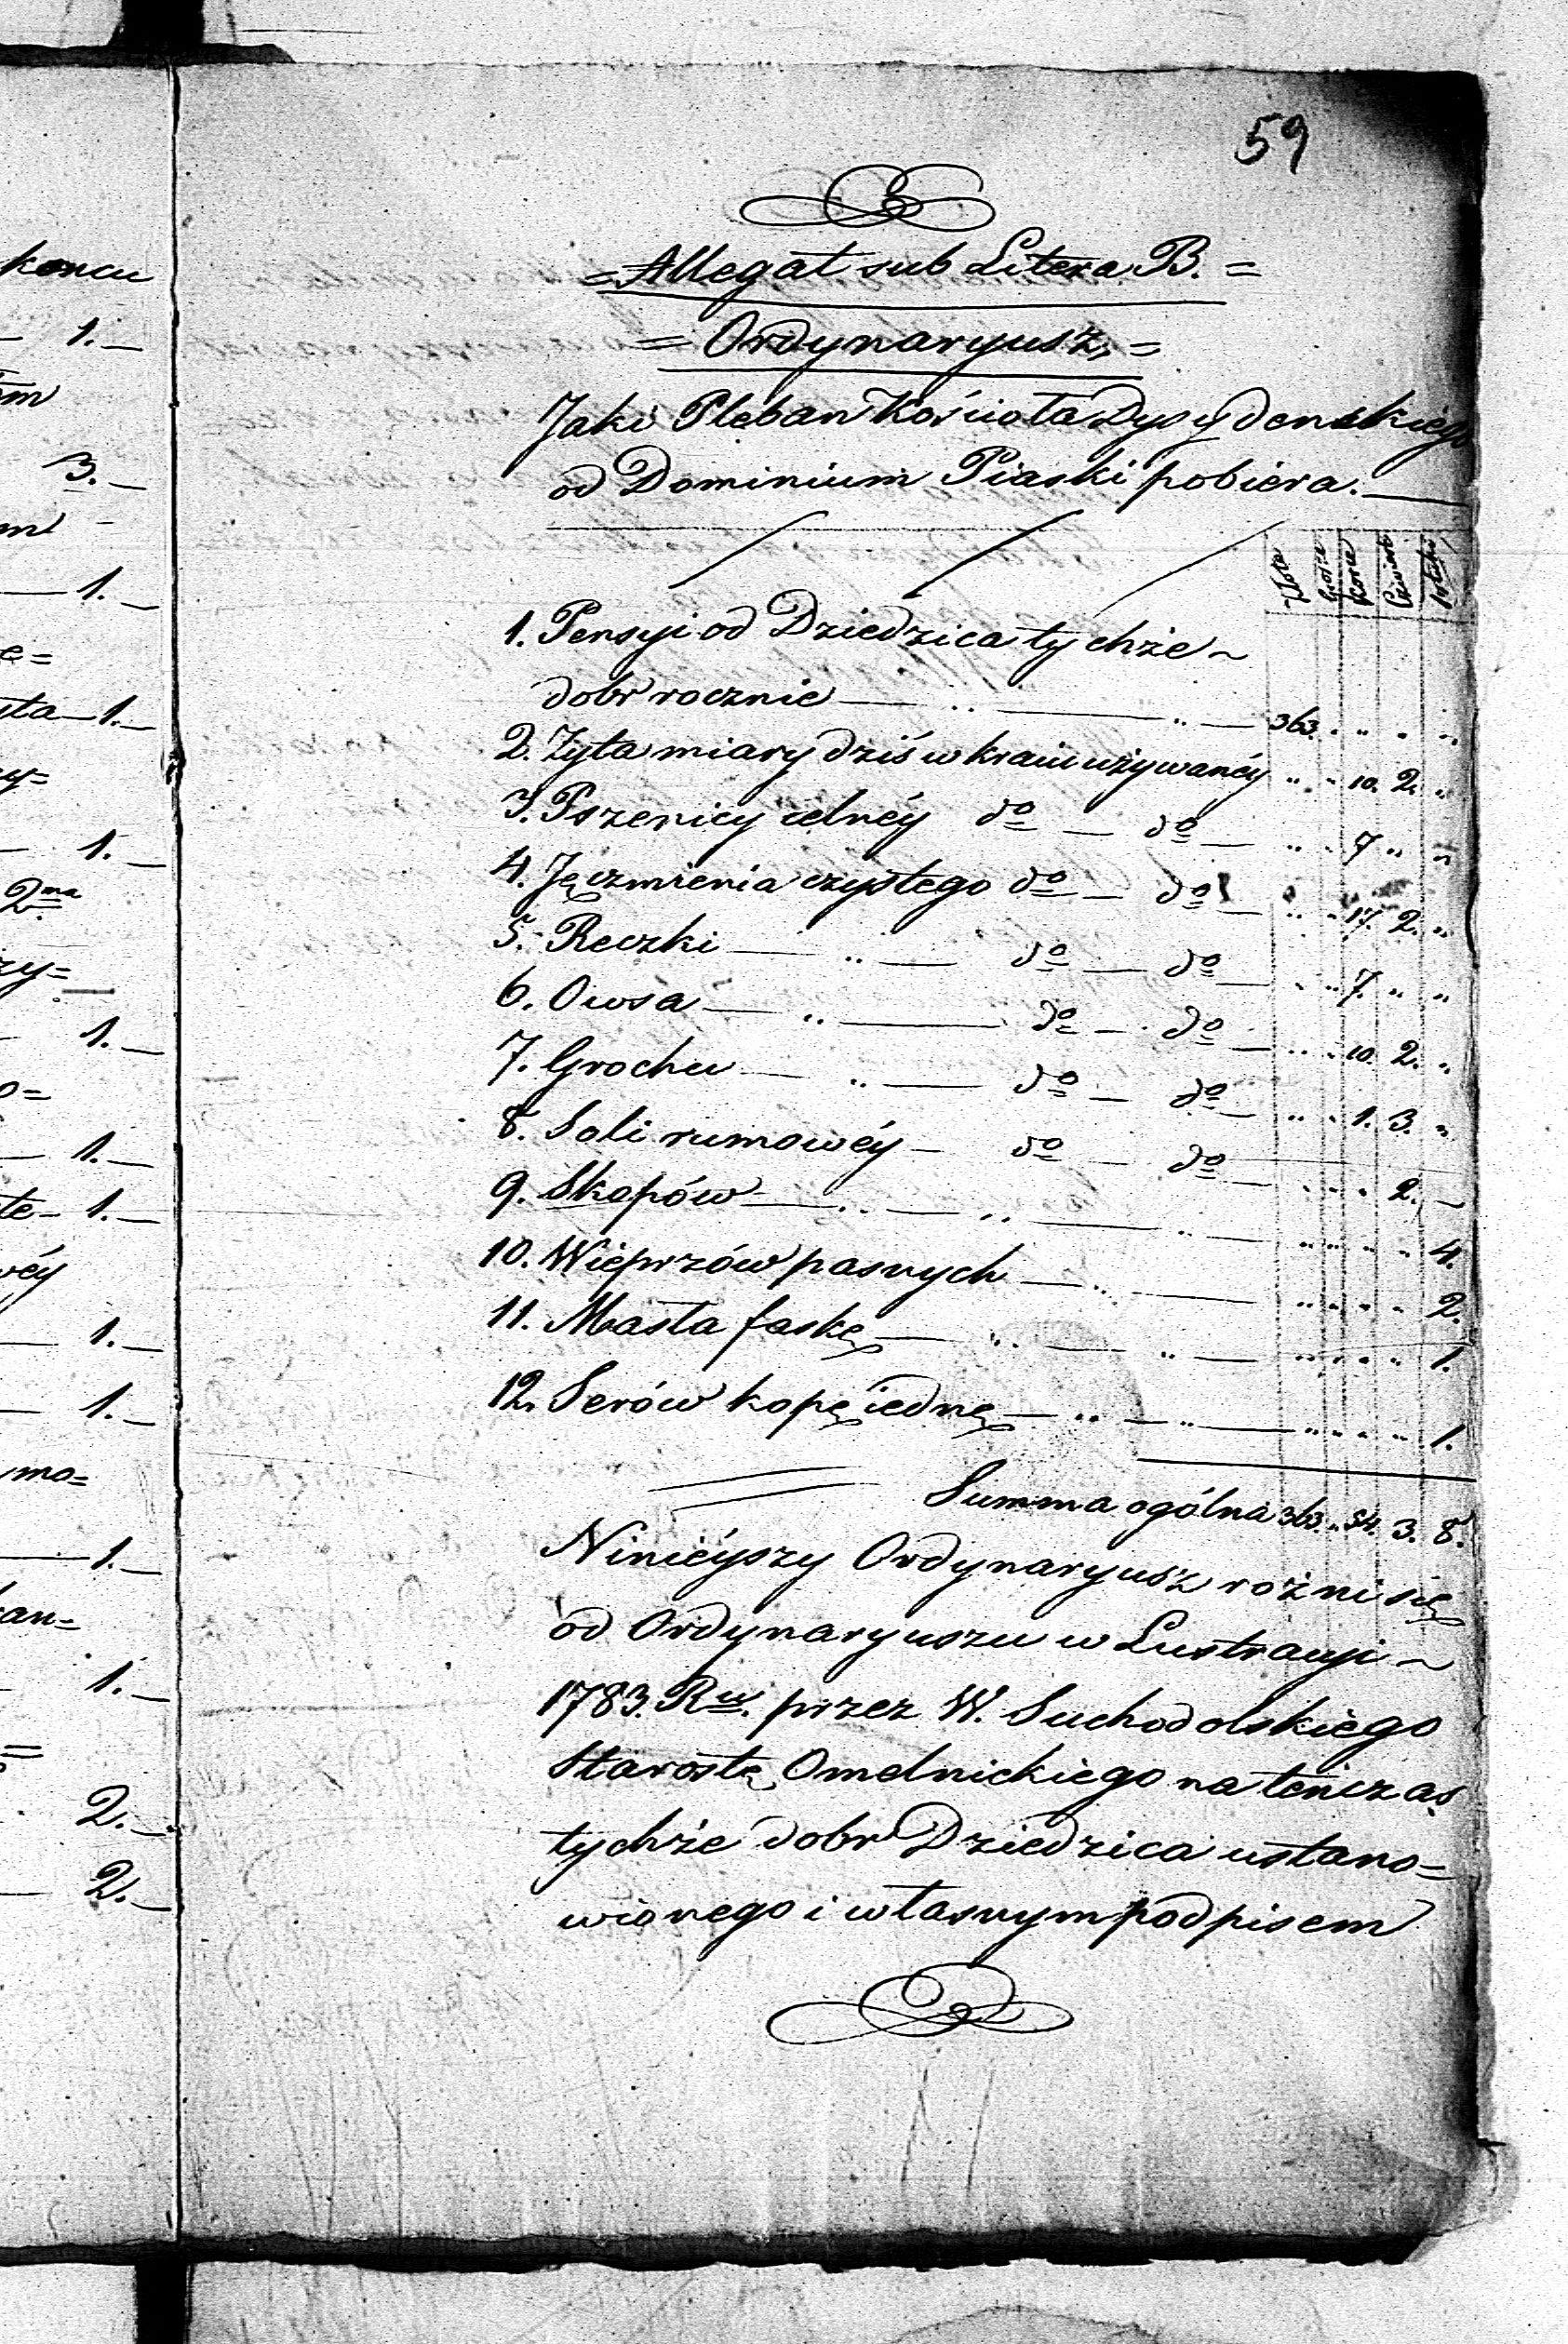 59
koncu
1.—
3.—
1.—
1.—
1.—
2ma
1.—
1.—
1.—
1.—
1.—
1.—
1.—
2.—
2.—
= Allegat sub Litera B. =
= Ordynaryusz =
Jaki Pleban Kościoła Dyssydenskiego
od Dominium Piaski pobiera.—
Złote Grosze Korce Ćwierć Sztuki
1. Pensyi od Dziedzica tychże ~
dobr rocznie — .. — .. — 363. .. .. .. ..
2. Żyta miary dziś w kraiu używanéy .. .. 10. 2. ..
3. Pszenicy celnéy do — do — .. .. 7 .. ..
4. Jęczmienia czystego do — do — .. .. 17. 2. ..
5. Reczki — .. — do — do — .. .. 7. .. ..
6. Owsa — .. — do — do — .. .. 10. 2. ..
7. Grochu — .. — do — do — .. .. 1. 3. ..
8. Soli rumowéy — do — do — .. .. .. 2. —
9. Skopów — .. — .. — .. — .. .. .. .. 4.
10. Wieprzów pasnych — .. — .. .. .. .. 2.
11. Masła faskę — .. — .. — .. .. .. .. 1.
12. Serów kopę iednę — .. — .. — .. .. .. .. 1.
Summa ogólna 363. .. 54. 3. 8.
Ninieyszy Ordynaryusz rożni się
od Ordynaryuszu w Lustracyi ~
1783. Ru. przez W. Suchodolskiego
Starostę Omelnickiego na tenczas
tychże dobr Dziedzica ustano=
wionego i własnym podpisem